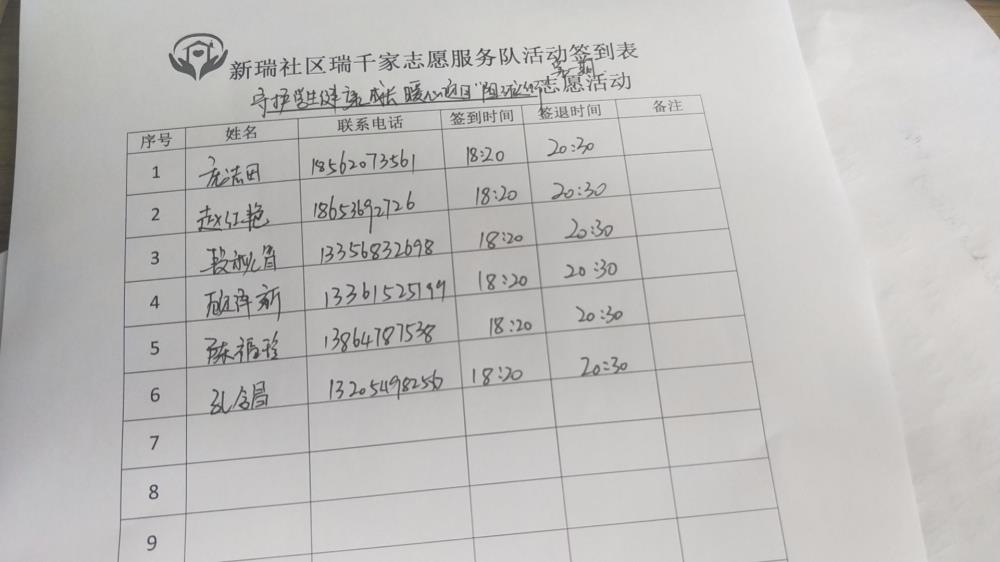 新瑞社区瑞千家志愿服务队活动签到表
守护学生健康成长 暖心 第一期 志愿活动
序号 姓名 联系电话 签到时间 签退时间 备注
1 18562073561 18:20 20:30
2 赵红艳 18653692726 18:20 20:30
3 13356832698 18:20 20:30
4 13361525199 18:20 20:30
5 陈福珍 13864787538 18:20 20:30
6 孔令昌 13205498256 18:20 20:30
7
8
9